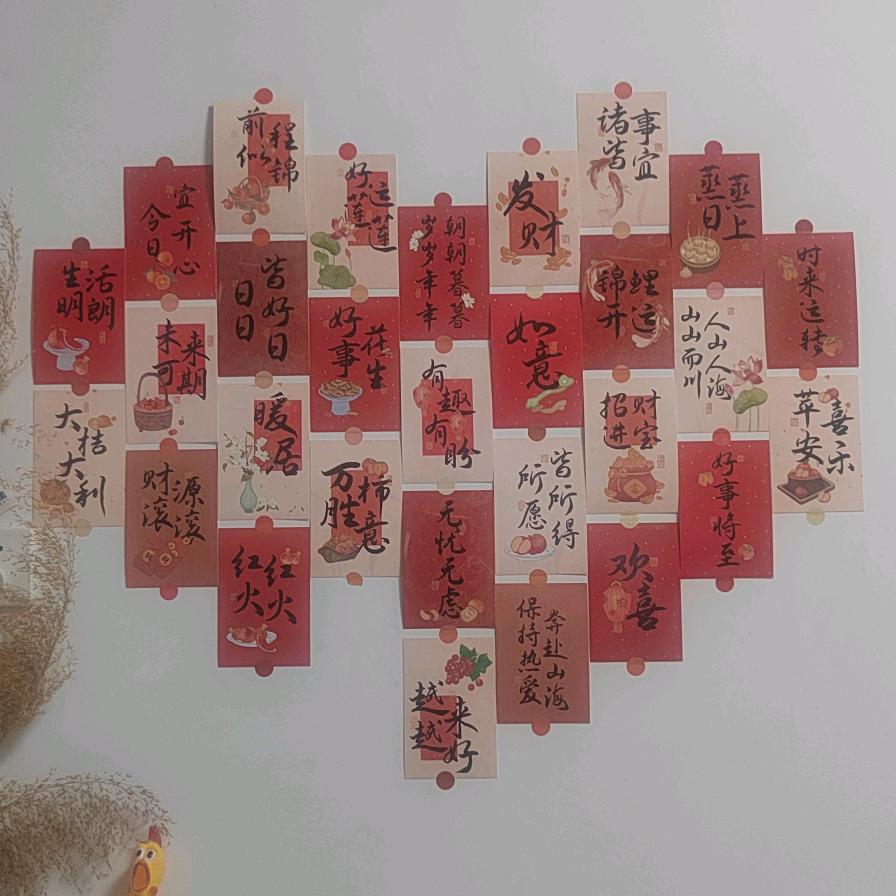 生活
明朗
大桔
大利
今日
宜开心
未来
可期
财源
滚滚
前程
似锦
日日
皆好日
暖居
红红
火火
好运
莲莲
好事
花生
万柿
胜意
岁岁年年
朝朝暮暮
有趣有盼
无忧无虑
越来
越好
发财
如意
所愿
皆所得
保持热爱
奔赴山海
诸事
皆宜
锦鲤
开运
招财
进宝
欢喜
蒸蒸
日上
山山而川
人山人海
好事将至
时来运转
苹安
喜乐